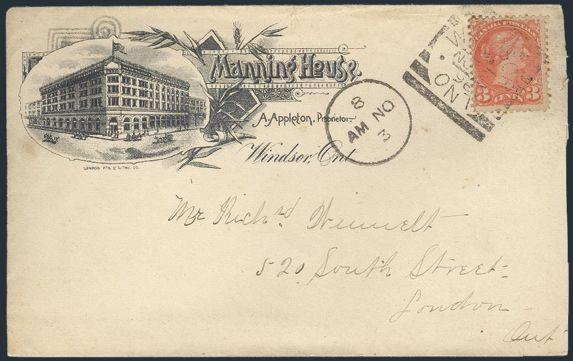 Manning House.
A. Appleton, Proprietor.
Windsor, Ont.
LONDON PTG. & LITHO. CO.
8
AM NO
3
CANADA POSTAGE
3 CENTS 3
Mr Rich'd
520 South Street
London
Ont